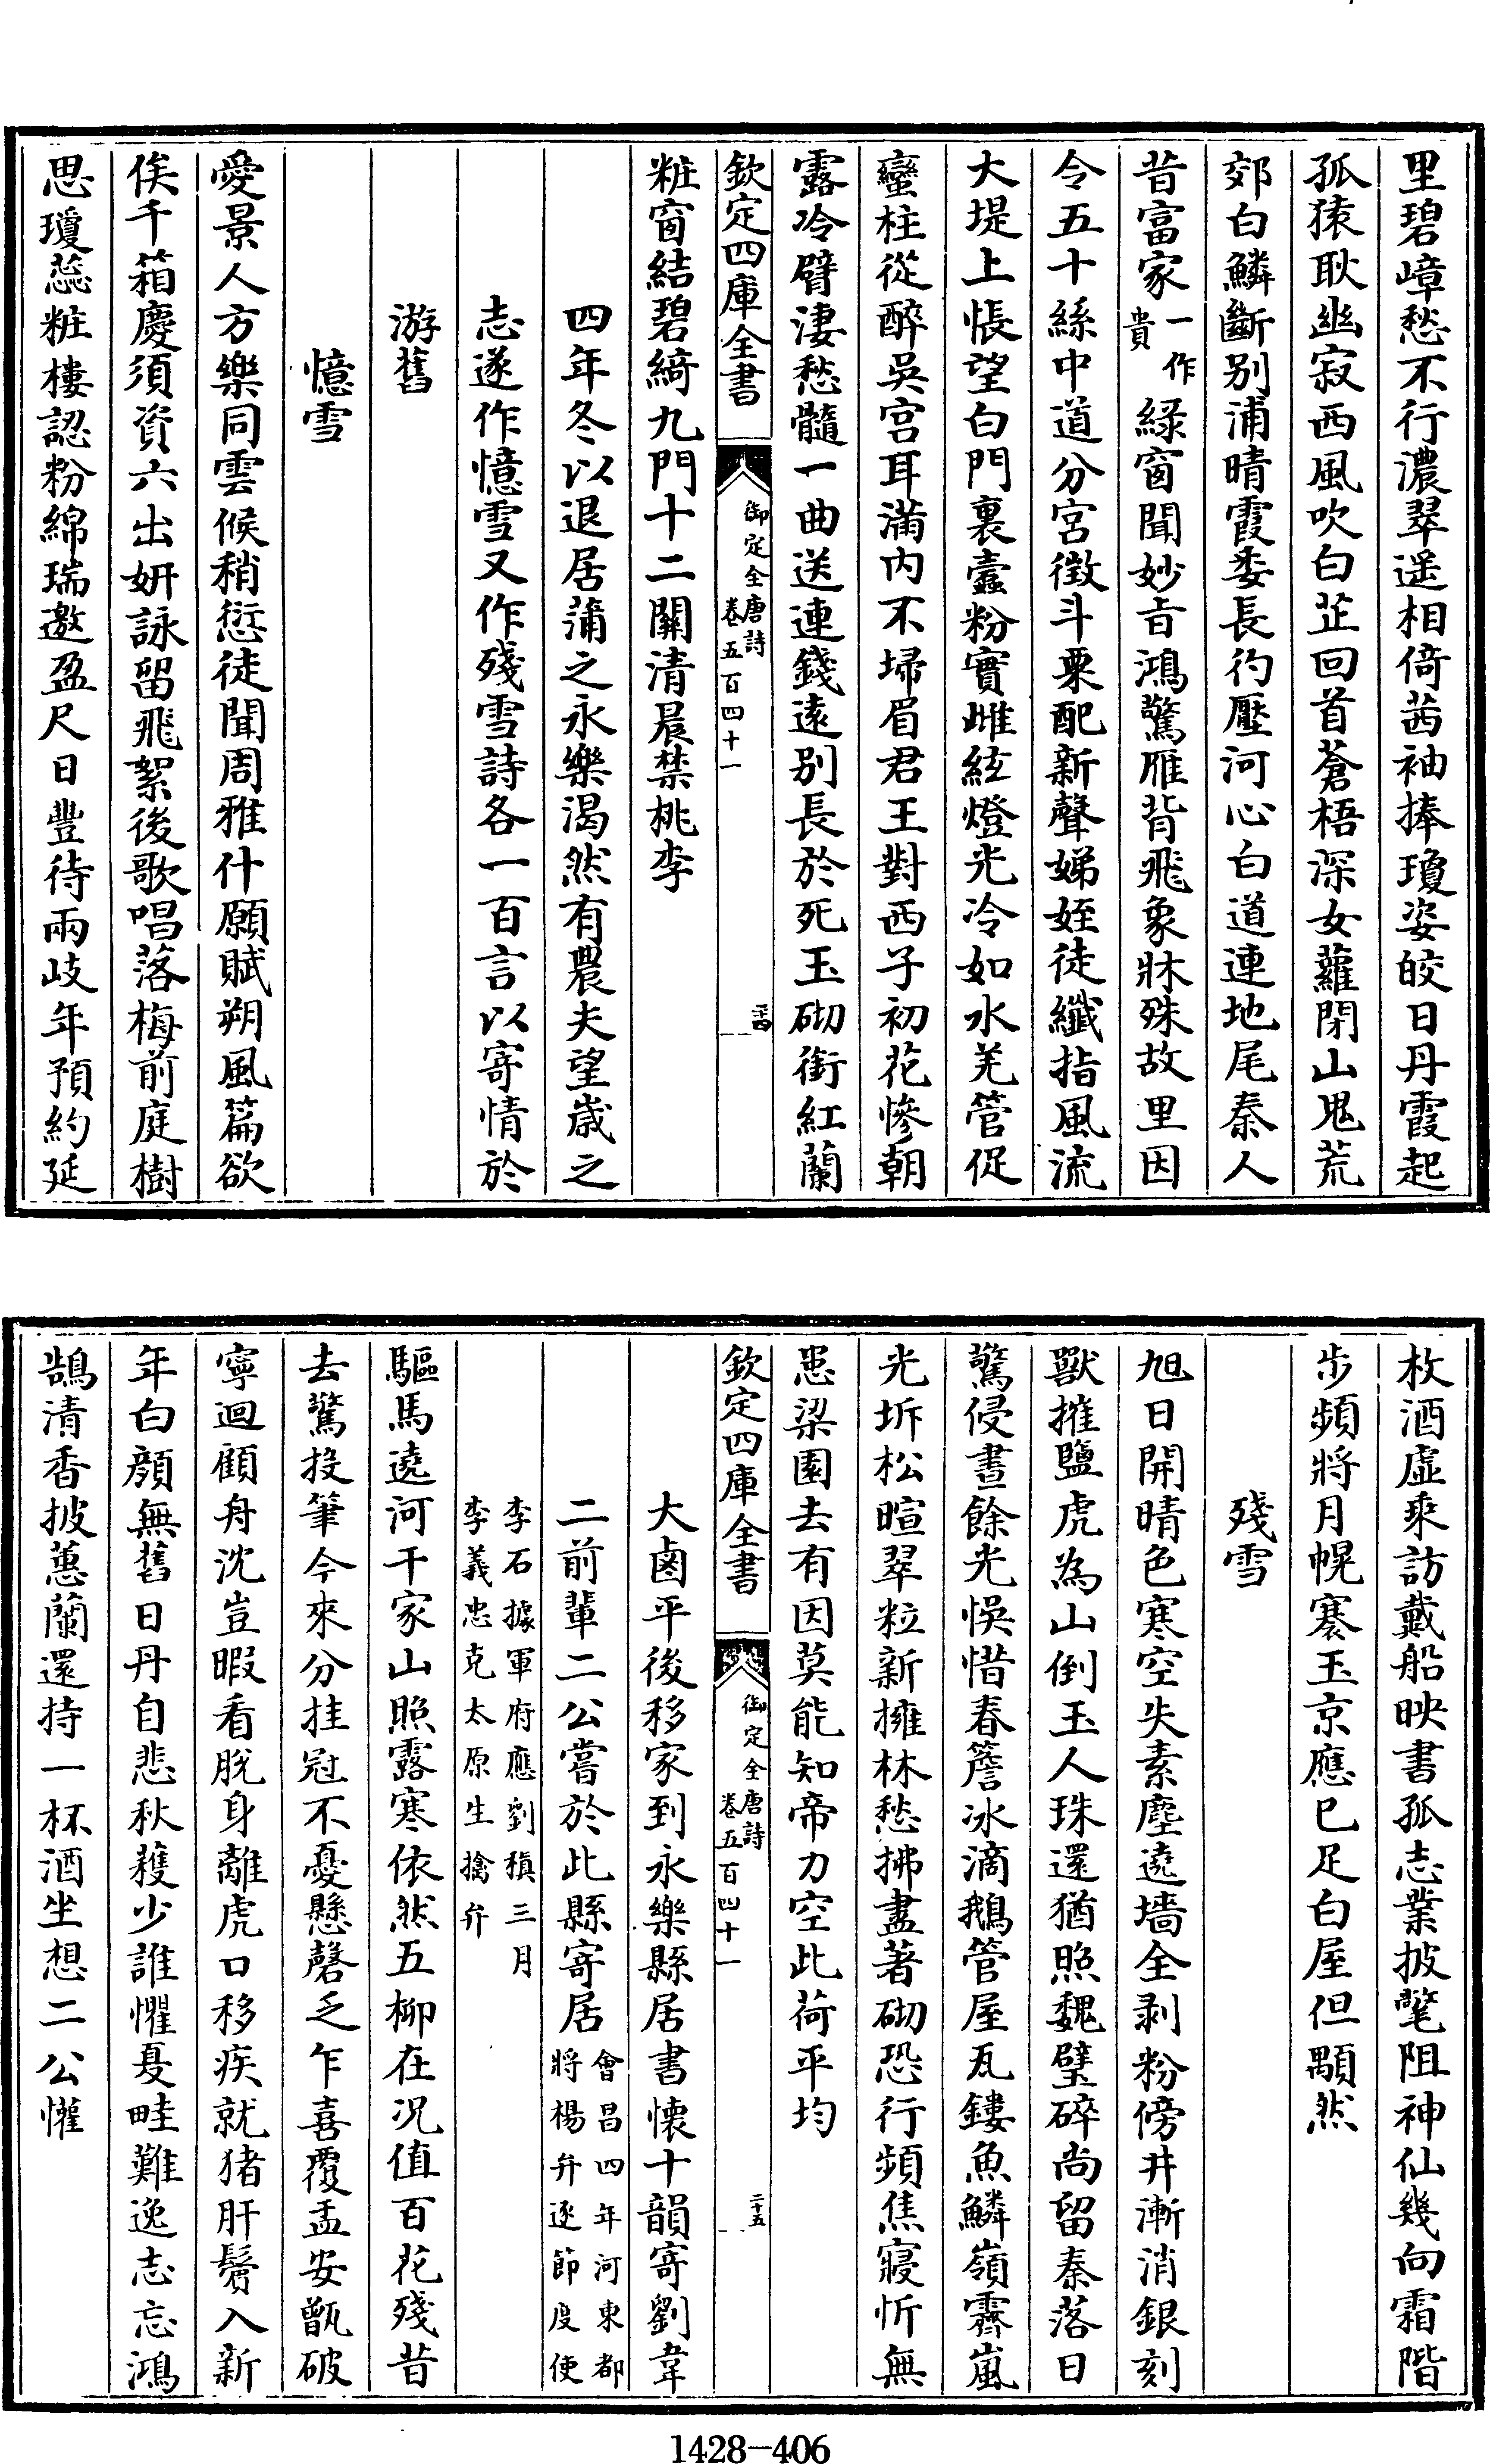 里碧嶂愁不行濃翠遥相倚茜袖捧瓊姿皎日丹霞起
孤猿耿幽寂西風吹白芷回首蒼梧深女蘿閉山鬼荒
郊白鱗斷别浦晴霞委長彴壓河心白道連地尾秦人
昔富家一作貴緑窗聞妙㫖鴻驚雁背飛象牀殊故里因
令五十絲中道分宮徵斗粟配新聲娣姪徒纖指風流
大堤上悵望白門裏蠧粉實雌絃燈光冷如水羌管促
蠻柱從醉吳宫耳滿内不埽眉君王對西子初花慘朝
露冷臂淒愁髓一曲送連錢遠别長於死玉砌銜紅蘭
欽定四庫全書 御定全唐詩 卷五百四十一 二十四
粧窗結碧綺九門十二關清晨禁桃李
四年冬以退居蒲之永樂渴然有農夫望歲之
志遂作憶雪又作殘雪詩各一百言以寄情於
游舊
憶雪
愛景人方樂同雲候稍愆徒聞周雅什願賦朔風篇欲
俟千箱慶須資六出妍詠留飛絮後歌唱落梅前庭樹
思瓊蕊粧樓認粉綿瑞邀盈尺日豐待兩岐年預約延
枚酒虛乘訪戴船映書孤志業披氅阻神仙幾向霜階
步頻將月幌褰玉京應已足白屋但顒然
殘雪
旭日開晴色寒空失素塵遶墻全剥粉傍井漸消銀刻
獸摧鹽虎為山倒玉人珠還猶照魏璧碎尚留秦落日
驚侵晝餘光悞惜春簷冰滴鵝管屋瓦鏤魚鱗嶺霽嵐
光坼松暄翠粒新擁林愁拂盡著砌恐行頻焦寢忻無
患梁園去有因莫能知帝力空此荷平均
欽定四庫全書 御定全唐詩 卷五百四十一 二十五
大鹵平後移家到永樂縣居書懷十韻寄劉韋
二前輩二公嘗於此縣寄居會昌四年河東都將楊弁逐節度使
李石據軍府應劉稹三月李義忠克太原生擒弁
驅馬遶河干家山照露寒依然五柳在况值百花殘昔
去驚投筆今來分挂冠不憂懸磬乏乍喜覆盂安甑破
寧迴顧舟沈豈暇看脫身離虎口移疾就猪肝鬢入新
年白顔無舊日丹自悲秋穫少誰懼夏畦難逸志忘鴻
鵠清香披蕙蘭還持一杯酒坐想二公懽
1428—406